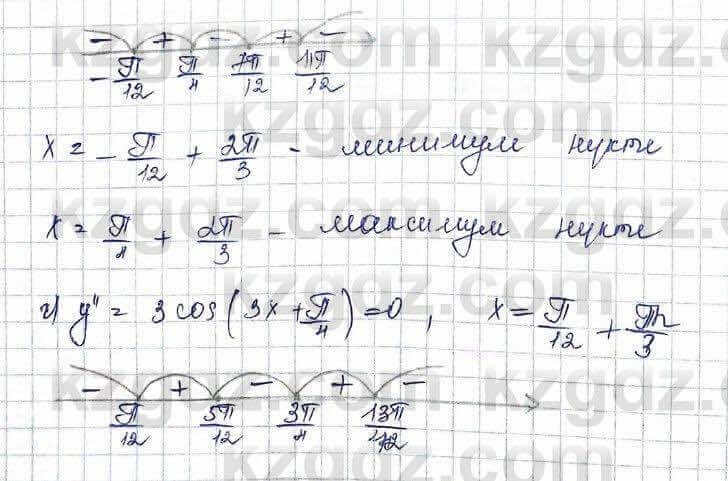 − + − + −
−π/12 π/4 7π/12 11π/12
x = −π/12 + 2π/3 - минимум нүкте
x = π/4 + 2π/3 - максимум нүкте
г) y'' = 3 cos(3x + π/4) = 0, x = π/12 + πn/3
− + − + −
π/12 5π/12 3π/4 13π/12
kzgdz.com